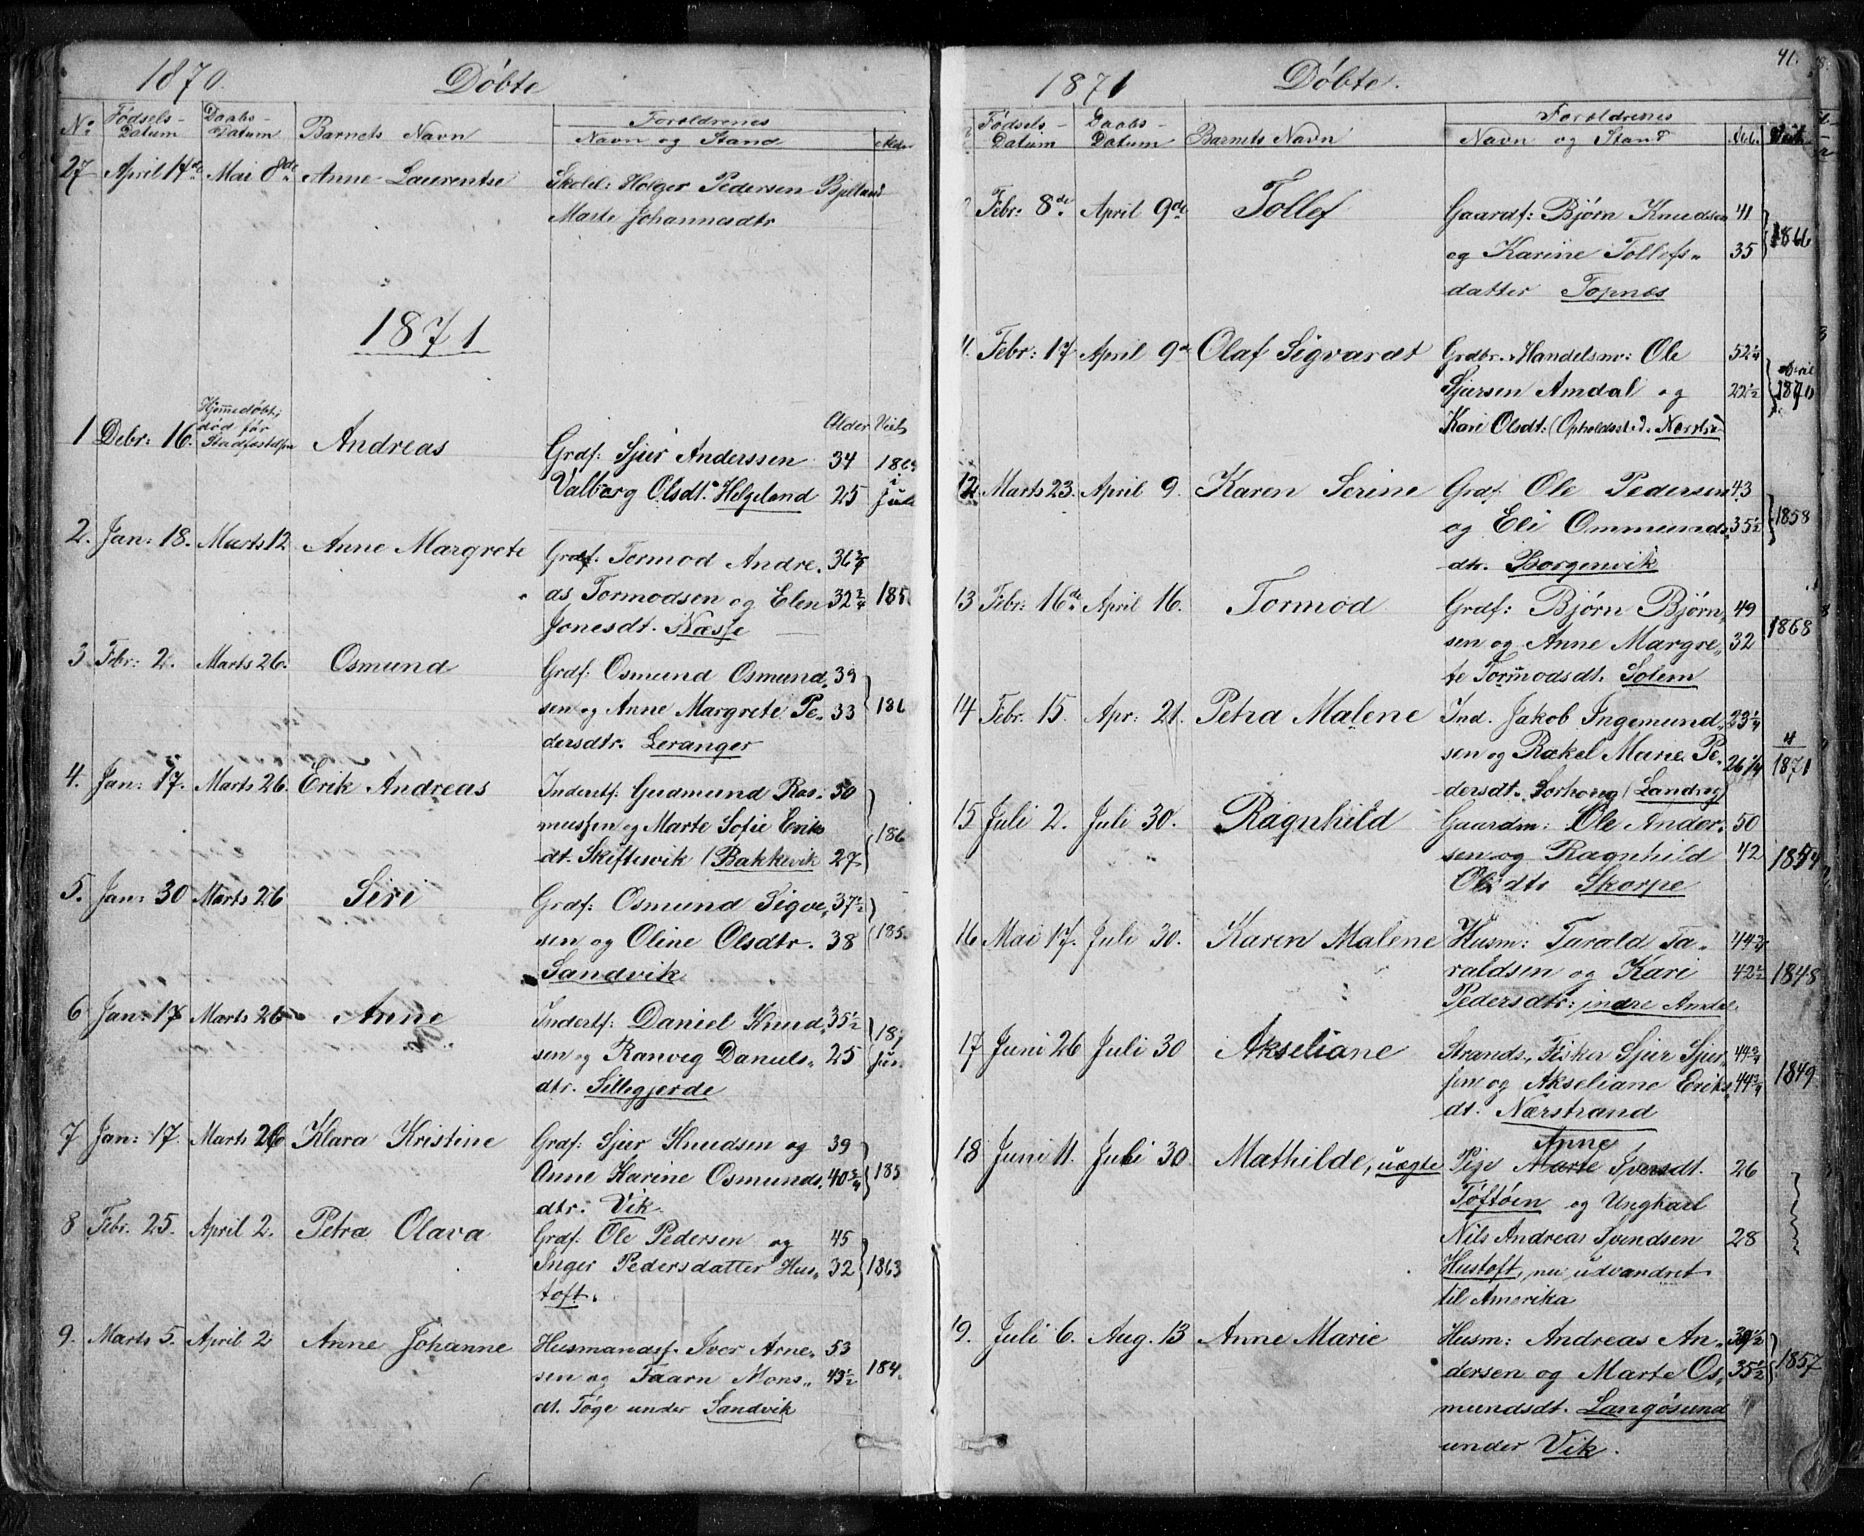 1870. Döbte
No Födsels-Datum Daabs-Datum Barnets Navn Forældrenes Navn og Stand Alder
27 April 14de Mai 8de Anne Laurentse Skolel: Holger Pedersen Bjelland
Marte Johannesdtr
1871
Alder Viet
1 Debr: 16. Hjemmedöbt, död för Stadfæstelsen Andreas Grdf: Sjur Anderssen 34
Valborg Olsdt. Helgeland 25 Juli
2. Jan: 18. Marts 12 Anne Margrete Grdf. Tormod Andre- 36 3/4
as Tormodsen og Elen 32 3/4 185
Jonesdt. Næsse
3 Fbr: 2. Marts 26. Osmund Grdf: Osmund Osmund- 39
sen og Anne Margrete Pe- 33 186
dersdtr. Leranger
4. Jan: 17. Marts 26. Erik Andreas Inderstf: Gudmund Ras- 30
mussen og Marte Sofie Eriks 186
dt. Skiftesvik (Bakkevik 27
5. Jan: 30 Marts 26 Siri Grdf: Osmund Sigve- 37 1/2
sen og Oline Olsdtr. 38 185
Sandvik
6 Jan: 17 Marts 26 Anne Inderstf: Daniel Knud- 35 1/2 187
sen og Ranveg Daniels- 25 Jun
dtr. Sillegjerde
7 Jan: 17. Marts 26 Klara Kristine Grdf: Sjur Knudsen og 39
Anne Karine Osmunds- 40 3/4 185
dtr: Vik
8 Febr. 25. April 2. Petra Olava Grdf. Ole Pedersen og 45
Inger Pedersdatter Hus- 32 1863
toft.
9. Marts 5. April 2 Anne Johanne Husmandsf. Iver Arne- 53
sen og Taarn Mons- 43 1/2 184
dt. Töge under Sandvik
41.
1871 Döbte.
Födsels-Datum Daabs-Datum Barnets Navn Forældrenes Navn og Stand Ald. Viet
Febr: 8de April 9de Tollef Gaardf: Bjørn Knudsen 41
og Karine Tollefs- 35 1866
datter Topnæs
11. Febr: 17 April 9de Olaf Sigvardt Grdbr. & Handelsm: Ole 52 1/4
Sjursen Amdal og 22 1/2 1870
Kari Olsdt: (Opholdssted. Nærstr
12 Marts 23. April 9. Karen Serine Grdf Ole Pedersen 43
og Eli Ommunds- 35 1/2 1858
dtr. Borgenvik
13 Febr: 16de April 16. Tormod Grdf: Bjørn Bjørn- 49
sen og Anne Margre- 32 1868
te Tormodsdt. Solem
14 Febr. 15. Apr: 21. Petra Malene Ind. Jakob Ingemund- 23 1/4
sen og Rakel Marie Pe- 26 1/4 4/1871
dersdt. Sorhoug (Landvig)
15 Juli 2. Juli 30. Ragnhild Gaardm: Ole Ander- 50
sen og Ragnhild 42 1854
Olsdtr Skorpe
16 Mai 17. Juli 30. Karen Malene Husm: Tarald Ta- 44 3/4
raldsen og Kari 42 1/2 1848
Pedersdtr: indre Amdal
17 Juni 26 Juli 30 Akseliane Strands. Fisker Sjur Sjur- 44 3/4
sen og Akseliane Eriks- 44 3/4 1849
dt. Nærstrand
Anne
18 Juni 11. Juli 30 Mathilde, uægte Pige Marte Iversdt. 26
Töftöen og Ungkarl
Nils Andreas Svendsen 28
Hustoft, nu udvandret
til Amerika
19. Juli 6. Aug. 13 Anne Marie Husm: Andreas An- 39 1/2
dersen og Marte Os- 35 1/2 1857
mundsdt. Langösund
under Vik.